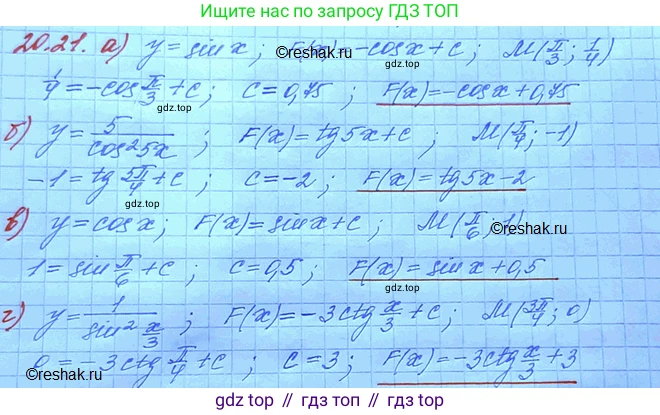 Ищите нас по запросу ГДЗ ТОП
20.21. а) y = sin x; F(x) = -cos x + c; M(π/3; 1/4)
1/4 = -cos π/3 + c; c = 0,75; F(x) = -cos x + 0,75
gdz.top
gdz.top
gdz.top
б) y = 5/cos²5x; F(x) = tg 5x + c; M(π/4; -1)
-1 = tg 5π/4 + c; c = -2; F(x) = tg 5x - 2
gdz.top
в) y = cos x; F(x) = sin x + c; M(π/6; 1)
©reshak.ru
1 = sin π/6 + c; c = 0,5; F(x) = sin x + 0,5
gdz.top
г) y = 1/sin² x/3; F(x) = -3ctg x/3 + c; M(3π/4; 0)
0 = -3ctg π/4 + c; c = 3; F(x) = -3ctg x/3 + 3
©reshak.ru
©reshak.ru
gdz.top // гдз.топ // gdz.top // гдз.топ